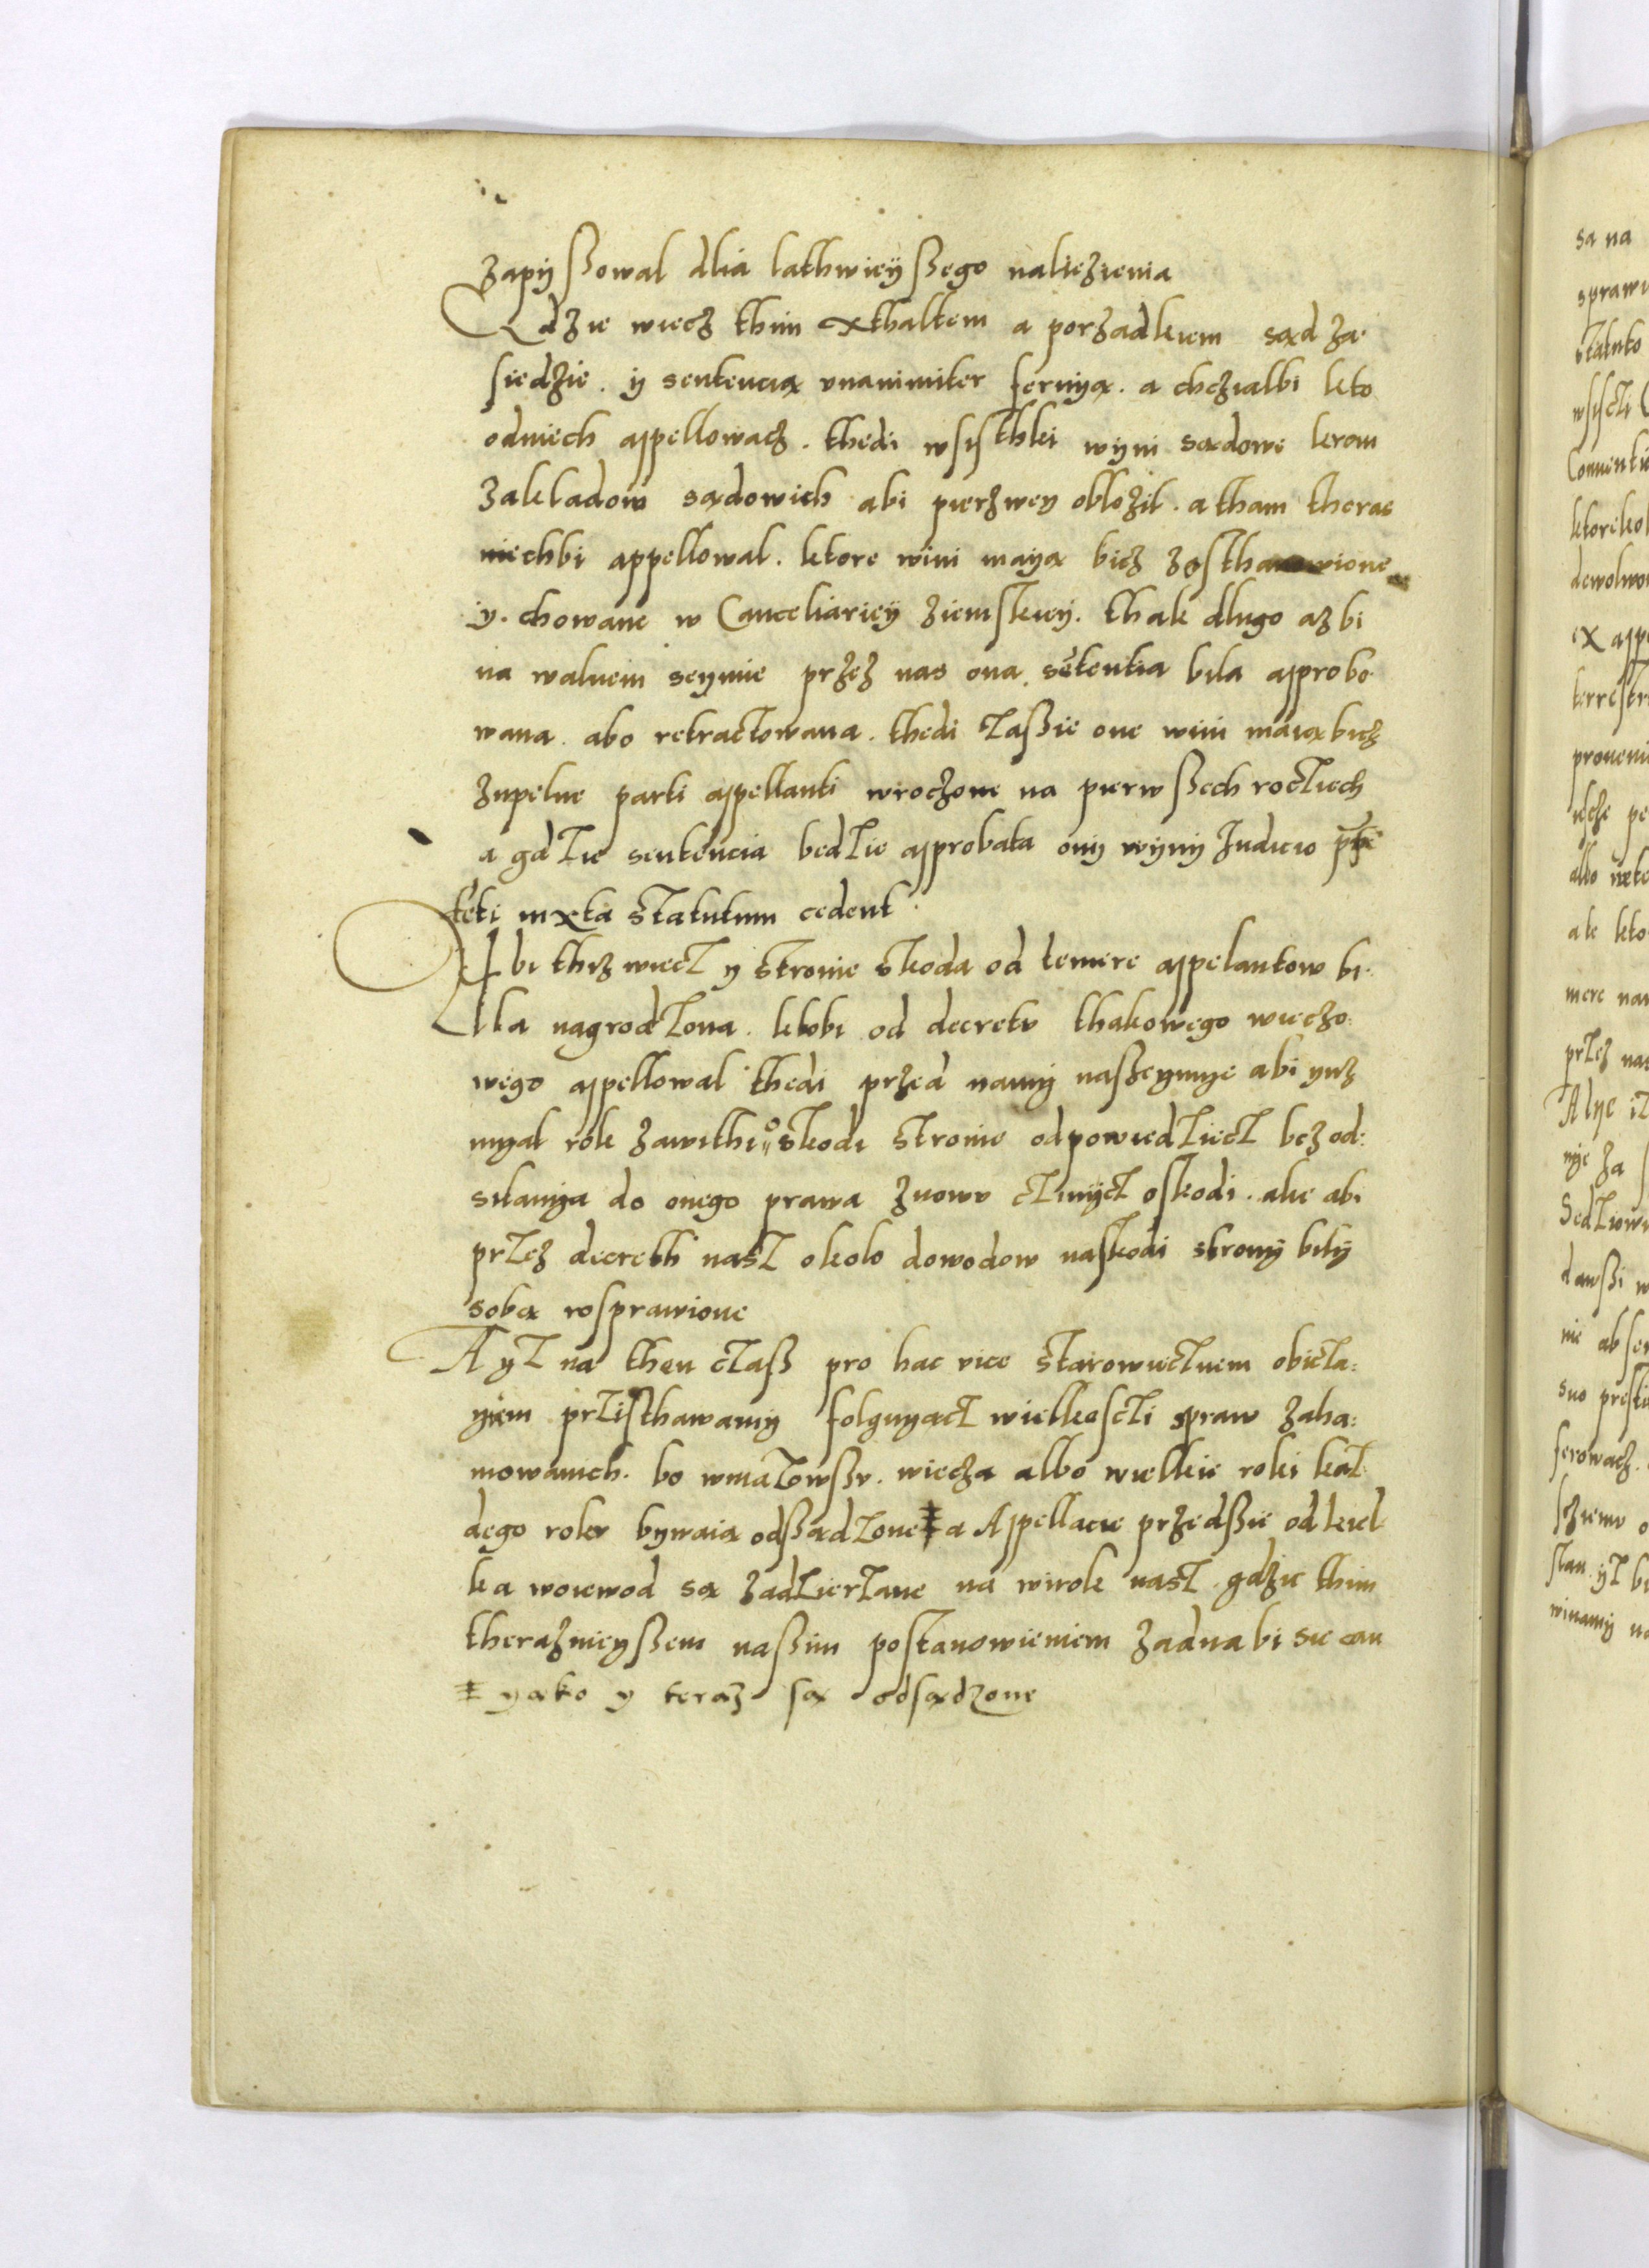 zapÿßowal dlia lathwieÿßego naliezienia
Gdzie wiecz thim xthaltem a porzadkiem sąd za
siedzie. ÿ sentencią vnanimiter feruyą. a chczialbi kto
odniech appellowacz. thedi wsisthki wÿni sądowe krom
zakladow sądowich abi pierzwey oblozil. a tham theras
niechbi appellowal. ktore wini mayą bicz zosthanowione
ÿ. chowane w Canceliarieÿ ziemskieÿ. thak dlugo azbi
na walnem seymie przez nas ona sētentia bila approbo
wana. abo retractowana. thedi zaßie one wini maią bicz
zupelne parti appellanti wroczone na pierwßech rocziech
a gdzie sentencia bedzie approbata onÿ wÿnÿ Judicio
feti iuxta statutum cedent.
Abi thiz wiecz y stronie skoda od temere appelantow bi
lla nagrodzona. ktobi od decretv thakowego wieczo
wego appellowal thedi przed namÿ naßeymye abi ynz
myal rok zawithi o skodi stronie odpowiedziecz bez od:
silanya do onego prawa znowv czinÿcz oskodi. alie abi
przez decreth nasz okolo dowodow naskodi stronÿ bilÿ
sobą rosprawione
Ayz na then czaß pro hac vice starowiecznem obicza:
yiem przisthawamÿ folguyącz wielkosczi spraw zaha:
mowanich. bo wmazowßv. wiecza albo wielkie roki kaz
dego rokv bywaią odßądzone ‡ a Appellacie przedßie od kiel
ka woiewod są zadzierzane na wirok nasz. gdzie thim
theraznieyßem naßim postanowieniem zadna bi sie cau
‡ yako y teraz są odsądzone
sa na
sprawi
statuto
wsisczi
Conuentu
ktoreko
dewolwo
ex appe
terrestr
proueni
albo
ale kto
mere nar
przez nas
Alye iz
nye za
Sedziowi
dawßi w
nie abse
suo presti
ferowacz.
sziemv o
stan. yz bi
winamÿ na